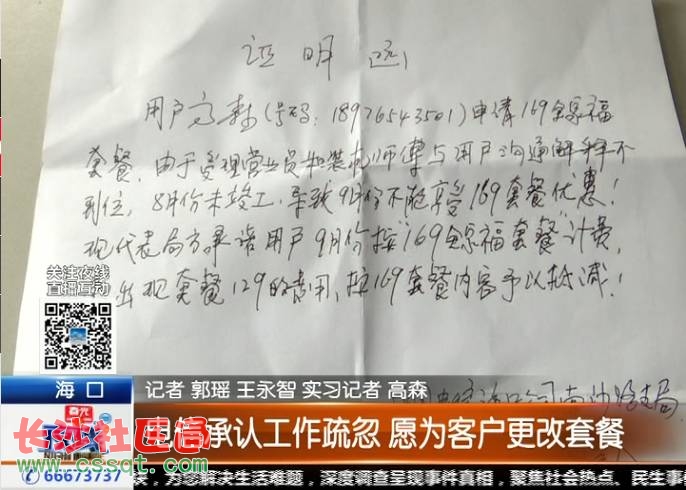 证明
用户高森(号码:18976543501)申请169全家福
套餐.由于受理营业员和装机师傅与用户沟通解释不
到位,8月份未竣工,导致9月份不能享受169套餐优惠!
现代表局方承诺用户9月份按"169全家福套餐"计费,
出现套餐129的费用,按169套餐内容予以抵减!
关注夜线
直播互动
海口
记者 郭瑶 王永智 实习记者 高森
电信承认工作疏忽 愿为客户更改套餐
长沙社区通
www.cssqt.com
66673737
为您解决生活难题,深度调查呈现事件真相,聚焦社会热点、民生事